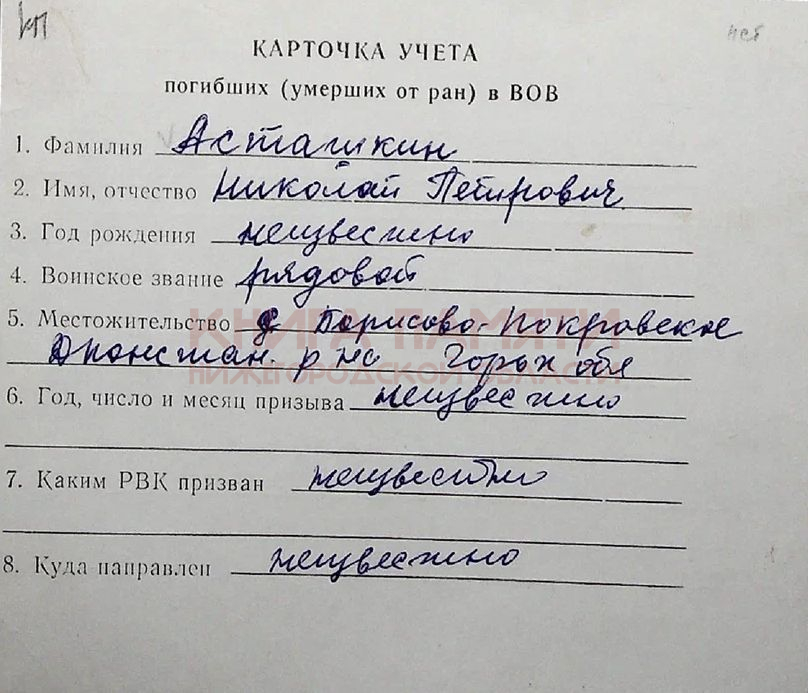 нет
КАРТОЧКА УЧЕТА
погибших (умерших от ран) в ВОВ
1. Фамилия Асташкин
2. Имя, отчество Николай Петрович
3. Год рождения неизвестно
4. Воинское звание рядовой
5. Местожительство д Борисово-Покровское
КНИГА ПАМЯТИ
р на Горьк обл
НИЖЕГОРОДСКОЙ ОБЛАСТИ
6. Год, число и месяц призыва неизвестно
7. Каким РВК призван неизвестно
8. Куда направлен неизвестно